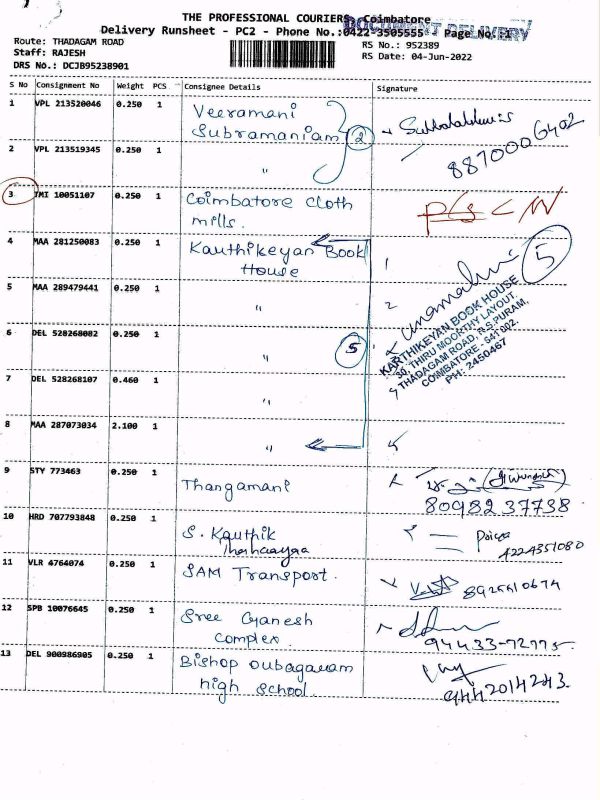 THE PROFESSIONAL COURIERS, Coimbatore
DOCUMENT DELIVERY
Delivery Runsheet - PC2 - Phone No.:0422-3505555 Page No. 1
Route: THADAGAM ROAD
RS No.: 952389
Staff: RAJESH
RS Date: 04-Jun-2022
DRS No.: DCJB95238901
S No Consignment No Weight PCS Consignee Details Signature
1 VPL 213520046 0.250 1 Veeramani
Subramaniam 2
8870006402
2 VPL 213519345 0.250 1 "
3 TMI 10051107 0.250 1 Coimbatore Cloth
mills.
4 MAA 281250083 0.250 1 Kauthikeyan Book
House
1 5
5 MAA 289479441 0.250 1 " 2
6 DEL 528268082 0.250 1 " 5
KARTHIKEYAN BOOK HOUSE
30, THIRU MOORTHY LAYOUT,
THADAGAM ROAD, R.S.PURAM,
COIMBATORE - 641 002.
PH: 2450467
7 DEL 528268107 0.460 1 "
8 MAA 287073034 2.100 1 " 5
9 STY 773463 0.250 1 Thangamani
80982 37738
10 HRD 707793848 0.250 1 S. Kauthik
4224351080
11 VLR 4764074 0.250 1 SAM Transport.
12 SPB 10076645 0.250 1 Sree Ganesh
complex.
94433-72775
13 DEL 900986905 0.250 1 Bishop oubagaram
high school.
9442014243.